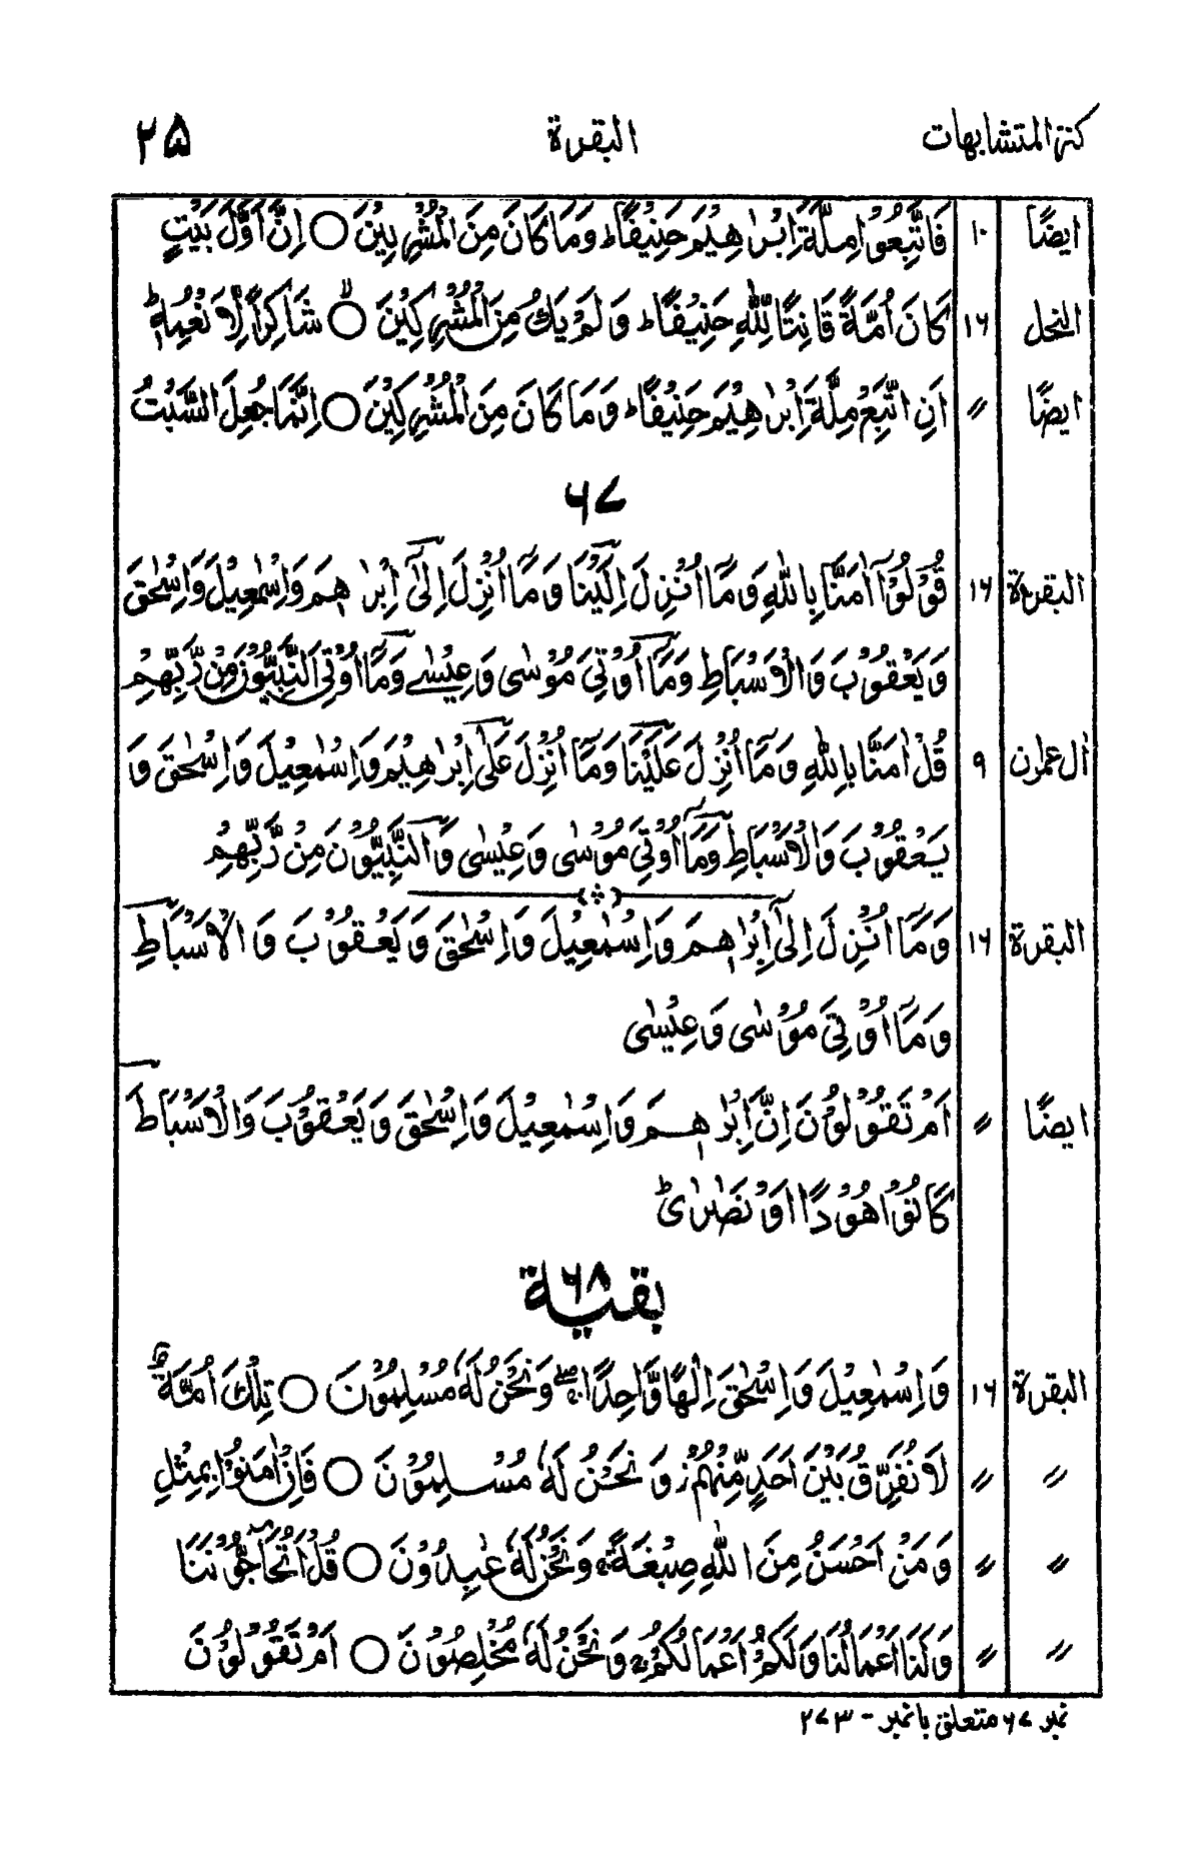 كنز المتشابهات البقرة ٢٥
ايضًا ١٠ فَاتَّبِعُوْا مِلَّةَ اِبْرٰهِيْمَ حَنِيْفًا ط وَمَا كَانَ مِنَ الْمُشْرِكِيْنَ ○ اِنَّ اَوَّلَ بَيْتٍ
النحل ١٦ كَانَ اُمَّةً قَانِتًا لِّلّٰهِ حَنِيْفًا ط وَلَمْ يَكُ مِنَ الْمُشْرِكِيْنَ ○ شَاكِرًا لِّاَنْعُمِهٖ ط
ايضًا ″ اَنِ اتَّبِعْ مِلَّةَ اِبْرٰهِيْمَ حَنِيْفًا ط وَمَا كَانَ مِنَ الْمُشْرِكِيْنَ ○ اِنَّمَا جُعِلَ السَّبْتُ
٦٧
البقرة ١٦ قُوْلُوْٓا اٰمَنَّا بِاللّٰهِ وَمَآ اُنْزِلَ اِلَيْنَا وَمَآ اُنْزِلَ اِلٰٓى اِبْرٰهٖمَ وَاِسْمٰعِيْلَ وَاِسْحٰقَ
وَيَعْقُوْبَ وَالْاَسْبَاطِ وَمَآ اُوْتِيَ مُوْسٰى وَعِيْسٰے وَمَآ اُوْتِيَ النَّبِيُّوْنَ مِنْ رَّبِّهِمْ
اٰل عمرٰن ٩ قُلْ اٰمَنَّا بِاللّٰهِ وَمَآ اُنْزِلَ عَلَيْنَا وَمَآ اُنْزِلَ عَلٰٓى اِبْرٰهِيْمَ وَاِسْمٰعِيْلَ وَاِسْحٰقَ وَ
يَعْقُوْبَ وَالْاَسْبَاطِ وَمَآ اُوْتِيَ مُوْسٰى وَعِيْسٰى وَالنَّبِيُّوْنَ مِنْ رَّبِّهِمْ
البقرة ١٦ وَمَآ اُنْزِلَ اِلٰٓى اِبْرٰهٖمَ وَاِسْمٰعِيْلَ وَاِسْحٰقَ وَيَعْقُوْبَ وَالْاَسْبَاطِ
وَمَآ اُوْتِيَ مُوْسٰى وَعِيْسٰى
ايضًا ″ اَمْ تَقُوْلُوْنَ اِنَّ اِبْرٰهٖمَ وَاِسْمٰعِيْلَ وَاِسْحٰقَ وَيَعْقُوْبَ وَالْاَسْبَاطَ
كَانُوْا هُوْدًا اَوْ نَصٰرٰى ط
بقية ٦٨
البقرة ١٦ وَاِسْمٰعِيْلَ وَاِسْحٰقَ اِلٰهًا وَّاحِدًا ۖ وَنَحْنُ لَهٗ مُسْلِمُوْنَ ○ تِلْكَ اُمَّةٌ
″ ″ لَا نُفَرِّقُ بَيْنَ اَحَدٍ مِّنْهُمْ ز وَنَحْنُ لَهٗ مُسْلِمُوْنَ ○ فَاِنْ اٰمَنُوْا بِمِثْلِ
″ ″ وَمَنْ اَحْسَنُ مِنَ اللّٰهِ صِبْغَةً ز وَنَحْنُ لَهٗ عٰبِدُوْنَ ○ قُلْ اَتُحَآجُّوْنَنَا
″ ″ وَلَنَآ اَعْمَالُنَا وَلَكُمْ اَعْمَالُكُمْ ج وَنَحْنُ لَهٗ مُخْلِصُوْنَ ○ اَمْ تَقُوْلُوْنَ
نمبر ٦٧ متعلق بانمبر - ٢٧٣